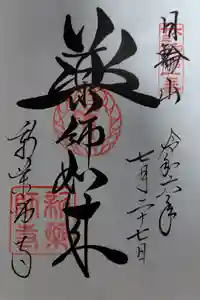 日輪山
令和六年
七月二十七日
薬師如来
新薬師寺